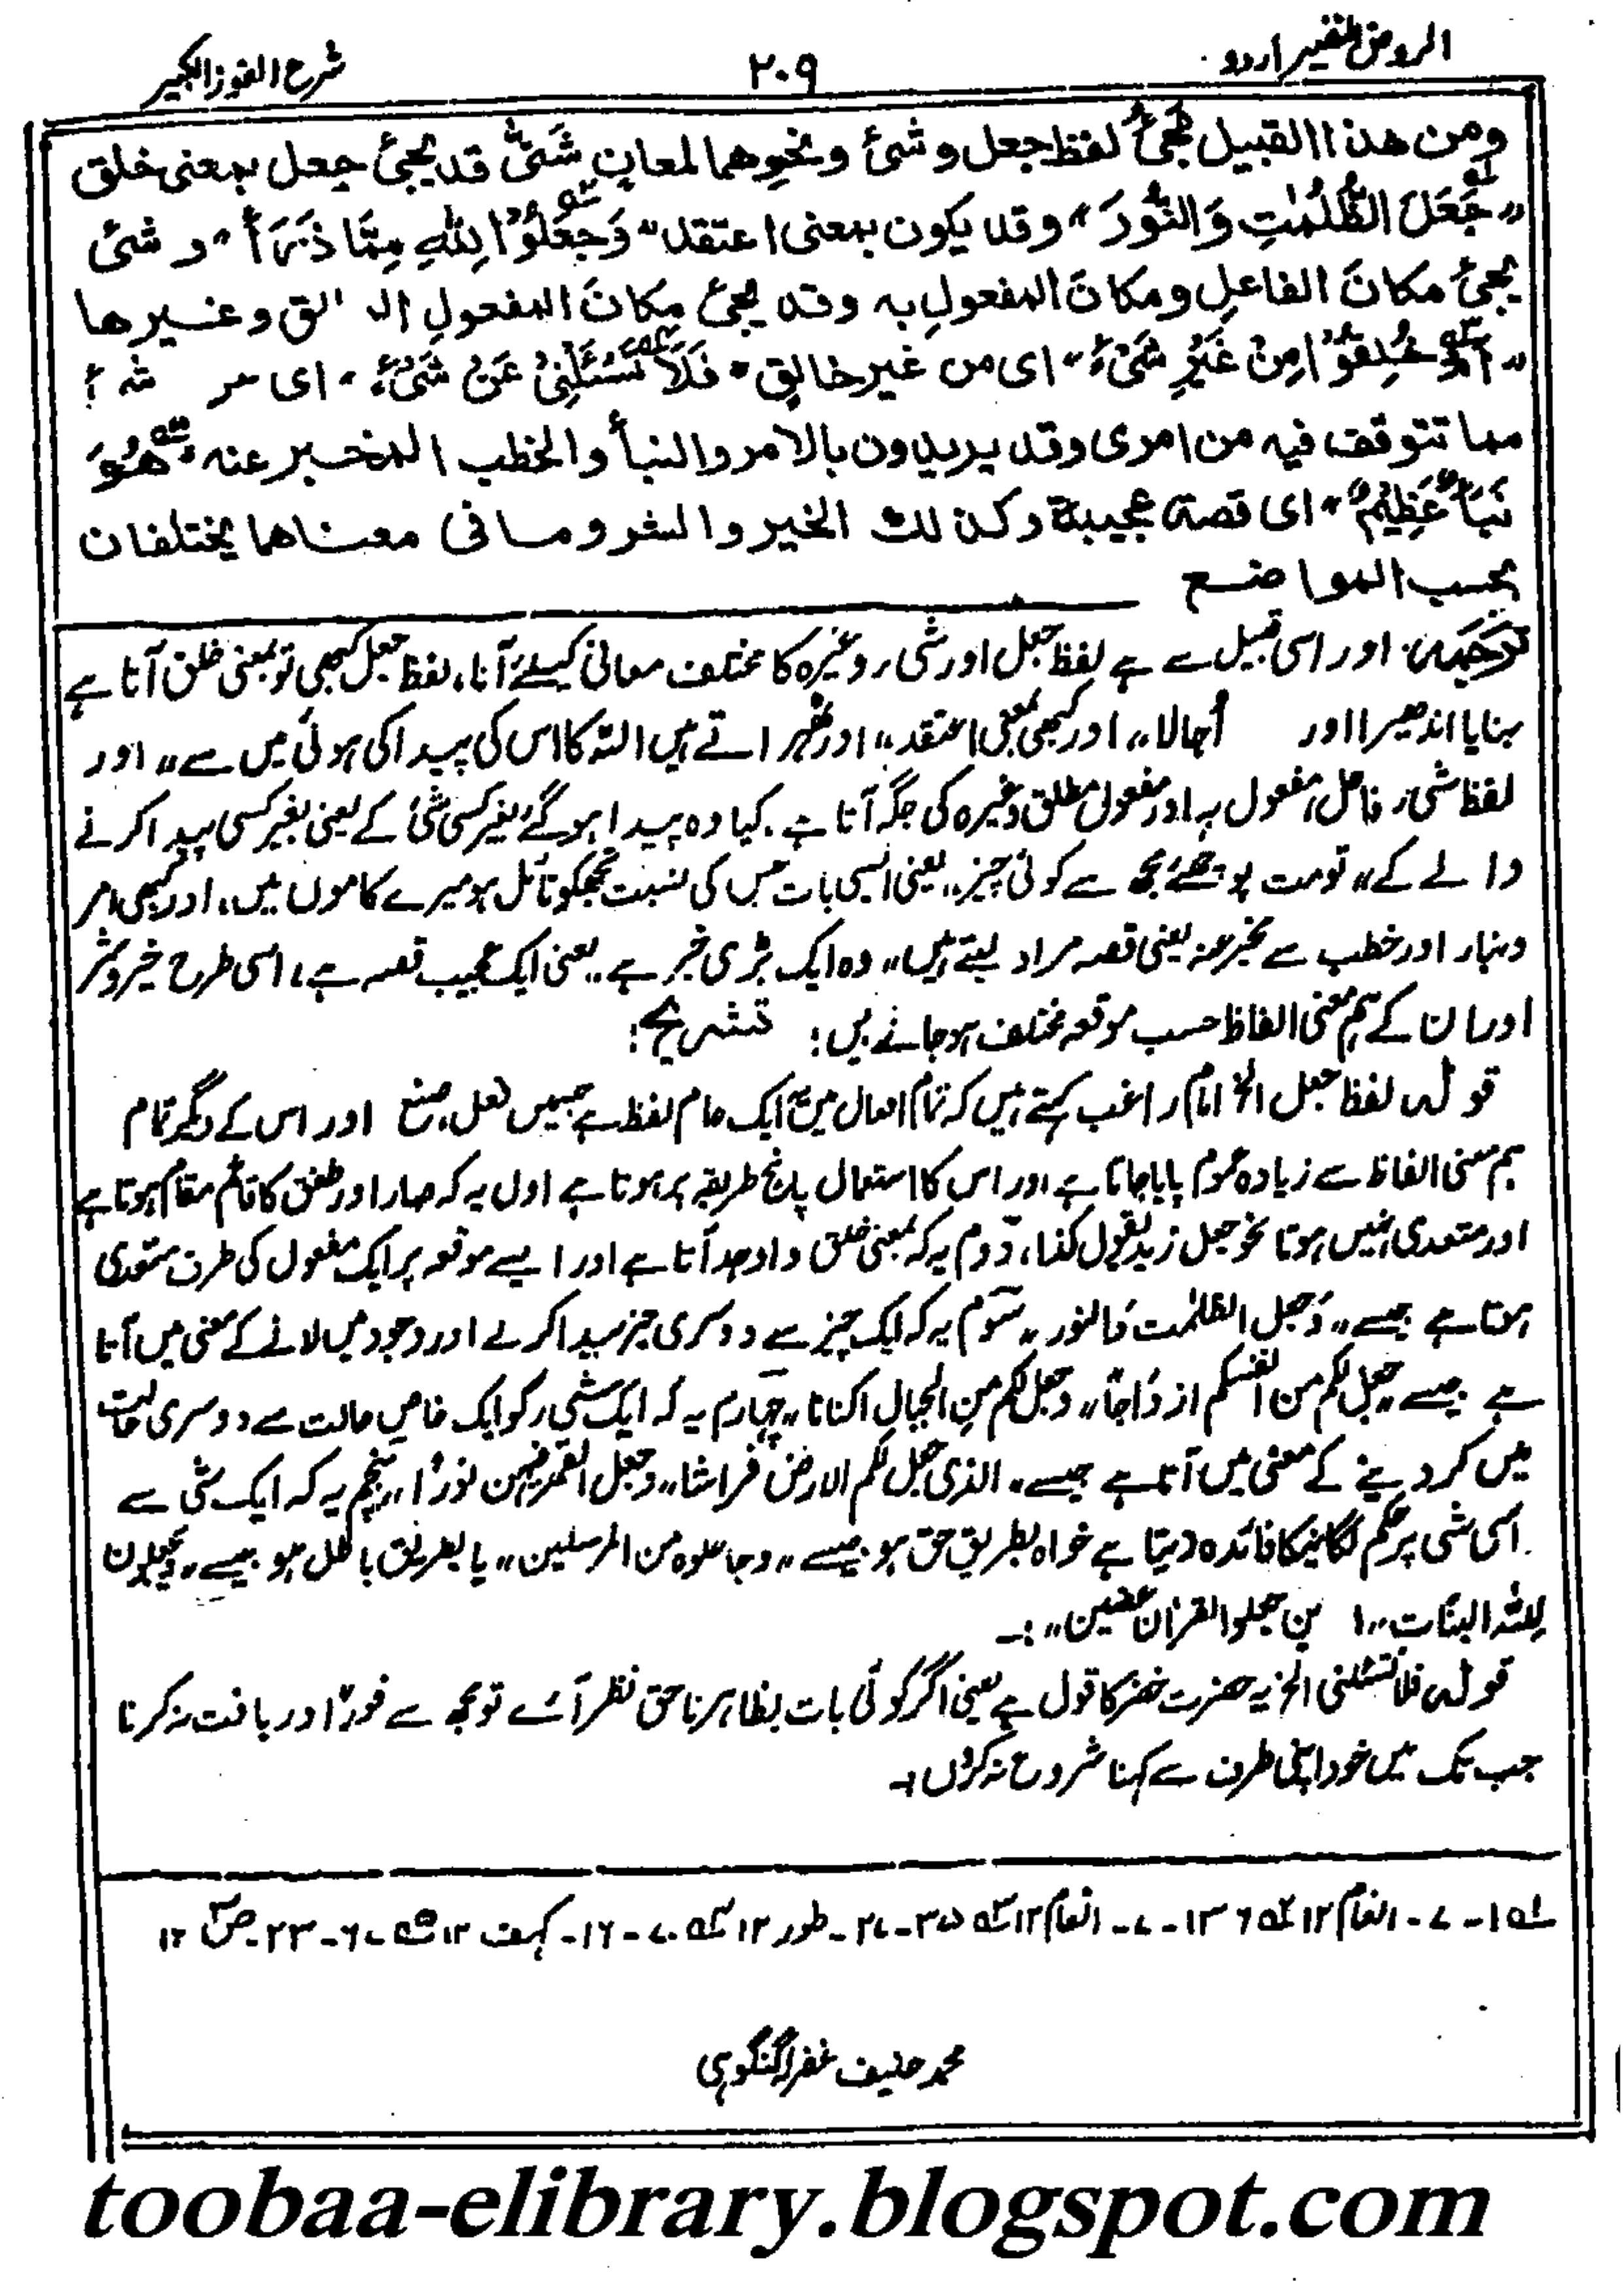 الروض النضير اردو
٢٠٩
شرح الفوز الكبير
ومن هذا القبيل مجئُ لفظ جعل وشئ ونحوهما لمعانٍ شَتّٰى قد يجئ جعل بمعنى خلق
"جَعَلَ الظُّلُمٰتِ وَالنُّوْرَ" وقد يكون بمعنى اعتقد "وَجَعَلُوْا لِلّٰهِ مِمَّا ذَرَأَ" و شئ
يجئ مكانَ الفاعلِ ومكانَ المفعولِ به وقد يجئ مكانَ المفعولِ الـ لق وغيرها
"اَمْ خُلِقُوْا مِنْ غَيْرِ شَىْءٍ" اى من غير خالقٍ "فَلَا تَسْئَلْنِىْ عَنْ شَىْءٍ" اى
مما تتوقف فيه من امرى وقد يريدون بالامر والنبأ والخطب المخبر عنه "هُوَ
نَبَأٌ عَظِيْمٌ" اى قصة عجيبة وكذلك الخير والشر وما فى معناهما يختلفان
بحسب المواضع
ترجمہ۔ اور اسی قبیل سے ہے لفظ جعل اور شئ وغیرہ کا مختلف معانی کیلئے آنا، لفظ جعل کبھی تو بمعنی خلق آتا ہے
بنایا اندھیرا اور اُجالا،، اور کبھی بمعنی اعتقد،، اور ٹھہراتے ہیں اللہ کا اس کی پیدا کی ہوئی میں سے،، اور
لفظ شئ، فاعل، مفعول بہ اور مفعول مطلق وغیرہ کی جگہ آتا ہے، کیا وہ پیدا ہوگئے بغیر کسی شئ کے یعنی بغیر کسی پیدا کرنے
والے کے،، تو مت پوچھئے مجھ سے کوئی چیز،، یعنی ایسی بات جس کی نسبت تجھکو تأمل ہو میرے کاموں میں، اور کبھی امر
ونبار اور خطب سے مخبر عنہ یعنی قصہ مراد لیتے ہیں،، وہ ایک بڑی خبر ہے،، یعنی ایک عجیب قصہ ہے، اسی طرح خیر و شر
اور ان کے ہم معنی الفاظ حسب موقعہ مختلف ہوجاتے ہیں؛ تشریح:
قولہ لفظ جعل الخ امام راغب کہتے ہیں کہ تمام افعال میں ایک عام لفظ ہے جسمیں فعل، صنع اور اس کے دیگر تمام
ہم معنی الفاظ سے زیادہ عموم پایا جاتا ہے اور اس کا استعمال پانچ طریقہ پر ہوتا ہے اول یہ کہ صار اور طفق کا قائم مقام ہوتا ہے
اور متعدی نہیں ہوتا نحو جعل زید یقول کذا، دوم یہ کہ بمعنی خلق و اوجد آتا ہے اور ایسے موقعہ پر ایک مفعول کی طرف متعدی
ہوتا ہے جیسے،، وَجعل الظلمٰت وَالنور،، سوم یہ کہ ایک چیز سے دوسری چیز پیدا کرنے اور وجود میں لانے کے معنی میں آتا
ہے جیسے،، جعل لکم من انفسکم ازوَاجًا،، وجعل لکم من الجبال اکنانا،، چہارم یہ کہ ایک شئ کو ایک خاص حالت سے دوسری حالت
میں کر دینے کے معنی میں آتا ہے جیسے، الذی جعل لکم الارض فراشا،، وجعل القمر فیہن نورًا،، پنجم یہ کہ ایک شئ سے
اسی شئ پر حکم لگانیکا فائدہ دیتا ہے خواہ بطریق حق ہو جیسے،، وجاعلوہ من المرسلین،، یا بطریق باطل ہو جیسے،، ویجعلون
للہ البنات،، ا ین جعلوا القرآن عضین،،:۔
قولہ فلا تسئلنی الخ یہ حضرت خضر کا قول ہے یعنی اگر کوئی بات بظاہر ناحق نظر آئے تو مجھ سے فورًا دریافت نہ کرنا
جب تک میں خود اپنی طرف سے کہنا شروع نہ کروں:۔
لہ ۱۔ ۷۔ انعام ۱۲ ٢ہ ۱۳۶۔ ۷۔ انعام ۱۲ ٣ہ ۳۵۔ ۲۷۔ طور ۱۲ ٤ہ ۷۰۔ ۱۶۔ کہف ۱۲ ٥ہ ۶۷۔ ۲۳۔ صٓ ۱۲
محمد حنیف غفرلہ گنگوہی
toobaa-elibrary.blogspot.com